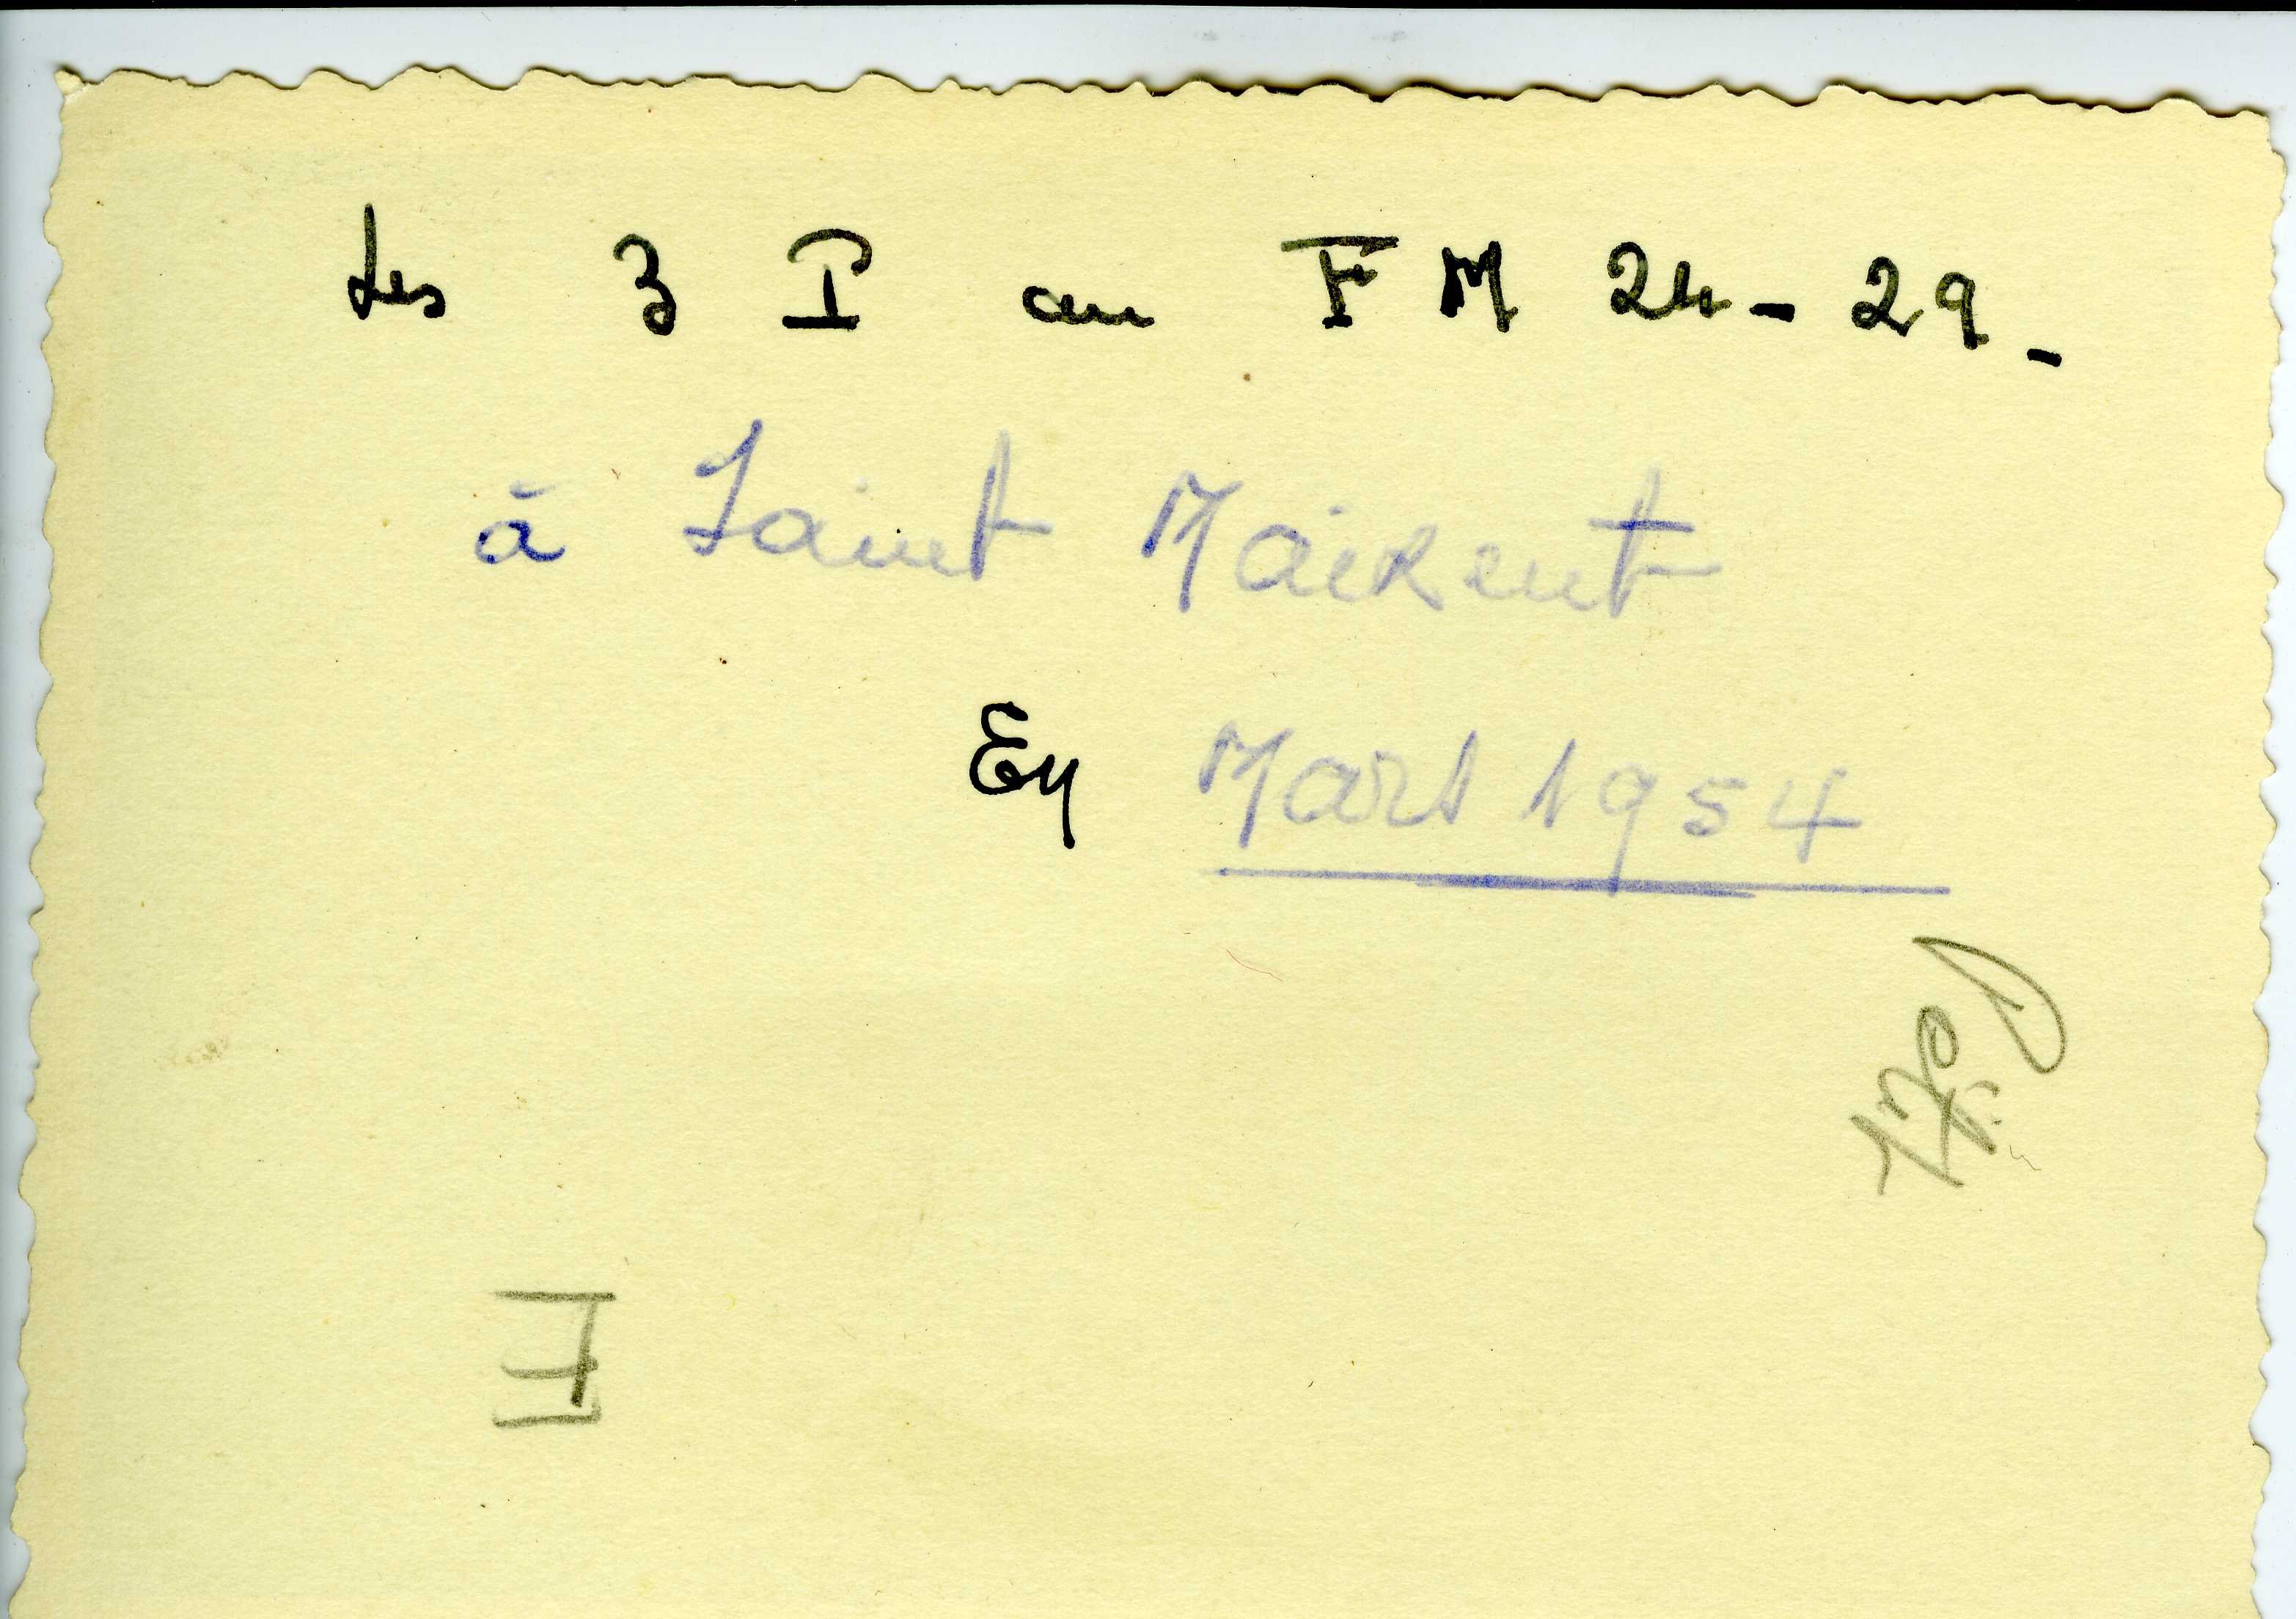 Les 3 P au FM 24-29-
à Saint Maixent
En Mars 1954